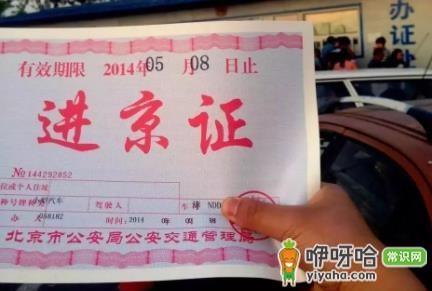 办证处
有效期限 2014年05月08日止
进京证
No144292852
位或个人住址
汽车
驾驶人
车
NDD
办 人 058182 时间: 2014
北京市公安局公安交通管理局
咿呀哈 常识网
yiyaha.com